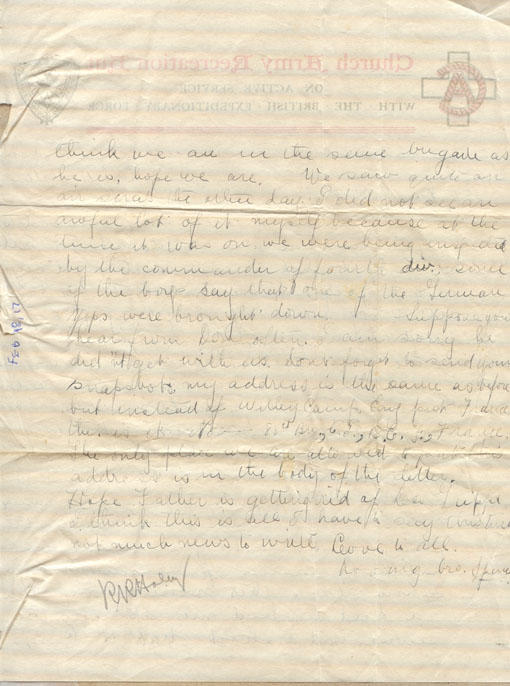 Church Army Recreation Hut
ON ACTIVE SERVICE
WITH THE BRITISH EXPEDITIONARY FORCE
think we are in the same brigade as
he is, hope we are. We saw quite an
air scrap the other day, I did not see an
awful lot of it myself because at the
time it was on we were being inspected
by the commander of fourth div, some
of the boys say that one of the German
were brought down. Suppose you
hear from often. I am sorry he
didn't get with us. Don't forget to send your
snapshots, my address is the same as before
but instead of Witley Camp, Eng put France
this is
The only place we are allowed to put
address is in the body of the letter.
Hope Father is getting rid of
I think this is all I have to say
not much news to write. Love to all.
bro.
Feb 18/17